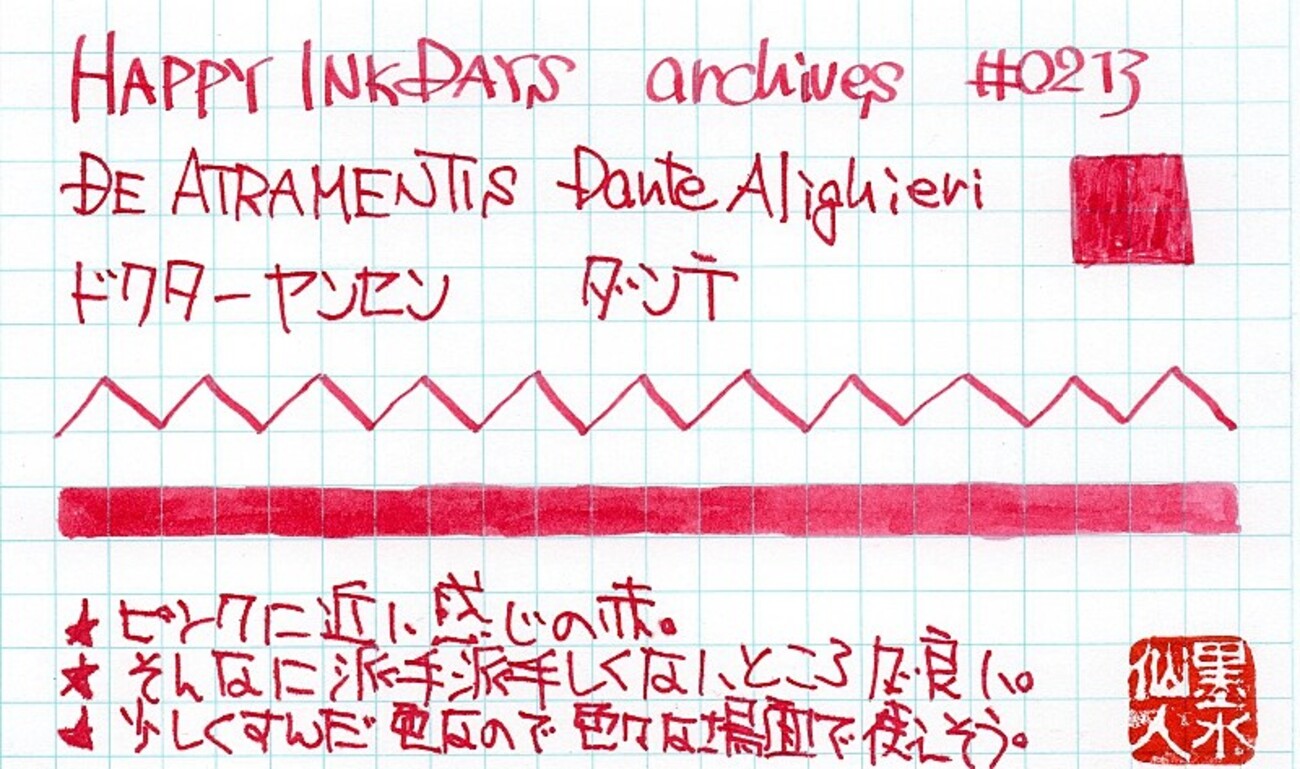 HAPPY INKDAYS archives #0213
DE ATRAMENTIS Dante Alighieri
ドクターヤンセン ダンテ
★ ピンクに近い感じの赤。
★ そんなに派手派手しくないところが良い。
★ 少しくすんだ色なので色々な場面で使えそう。
墨水
仙人